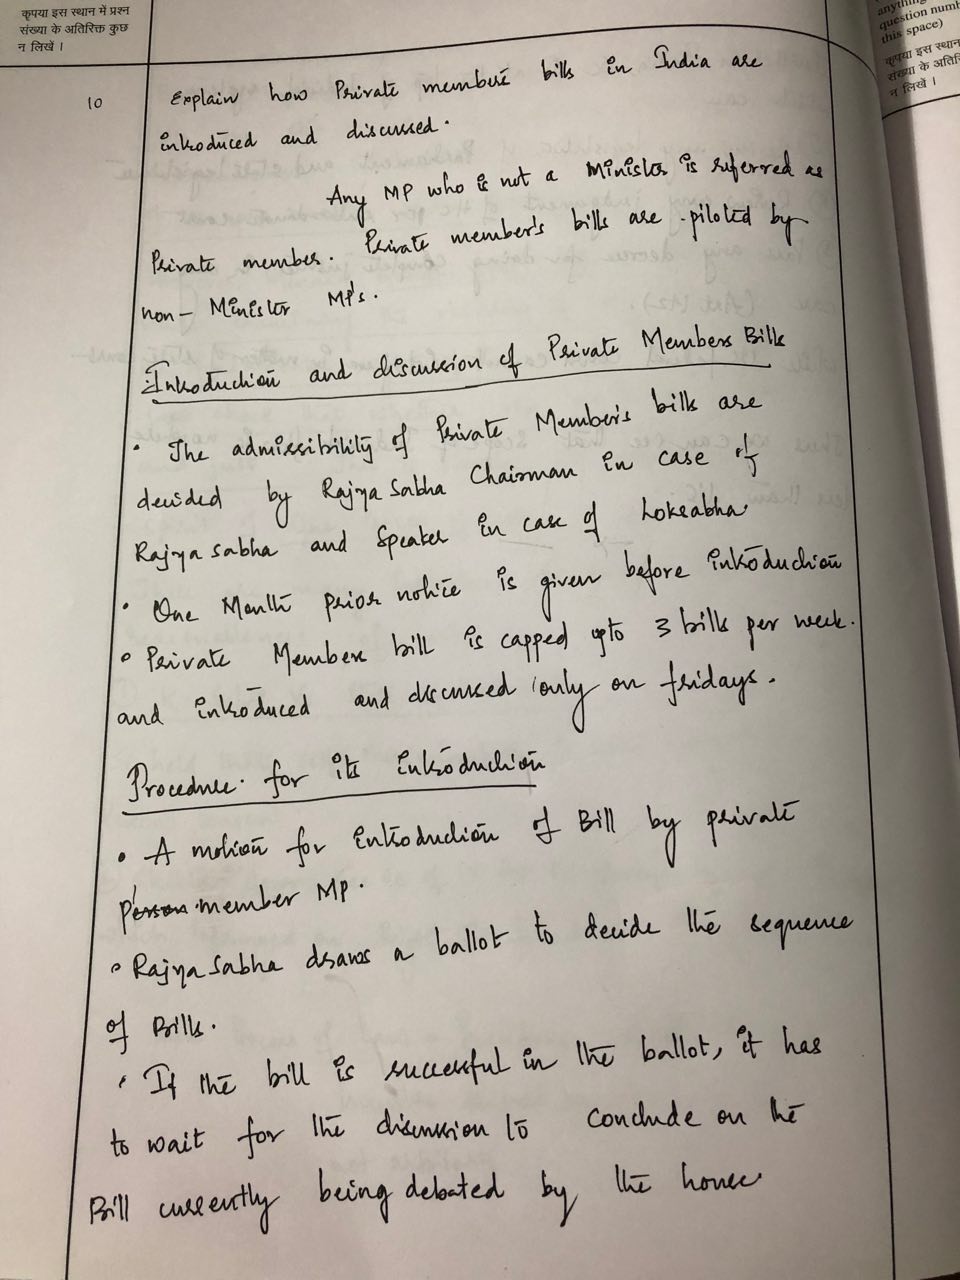 कृपया इस स्थान में प्रश्न
संख्या के अतिरिक्त कुछ
न लिखें ।
question numb
this space)
कृपया इस स्थान
संख्या के अतिरि
न लिखें ।
10
Explain how Private members bills in India are
introduced and discussed.
Any MP who is not a Minister is referred as
Private member. Private member's bills are piloted by
non - Minister MP's.
Introduction and discussion of Private Members Bills
• The admissibility of Private Member's bills are
decided by Rajya Sabha Chairman in case of
Rajya sabha and Speaker in case of Loksabha.
• One Month prior notice is given before introduction
• Private Members bill is capped upto 3 bills per week.
and introduced and discussed only on fridays.
Procedure for its introduction
• A motion for introduction of Bill by private
person member MP.
• Rajya Sabha draws a ballot to decide the sequence
of Bills.
• If the bill is successful in the ballot, it has
to wait for the discussion to conclude on the
Bill currently being debated by the house